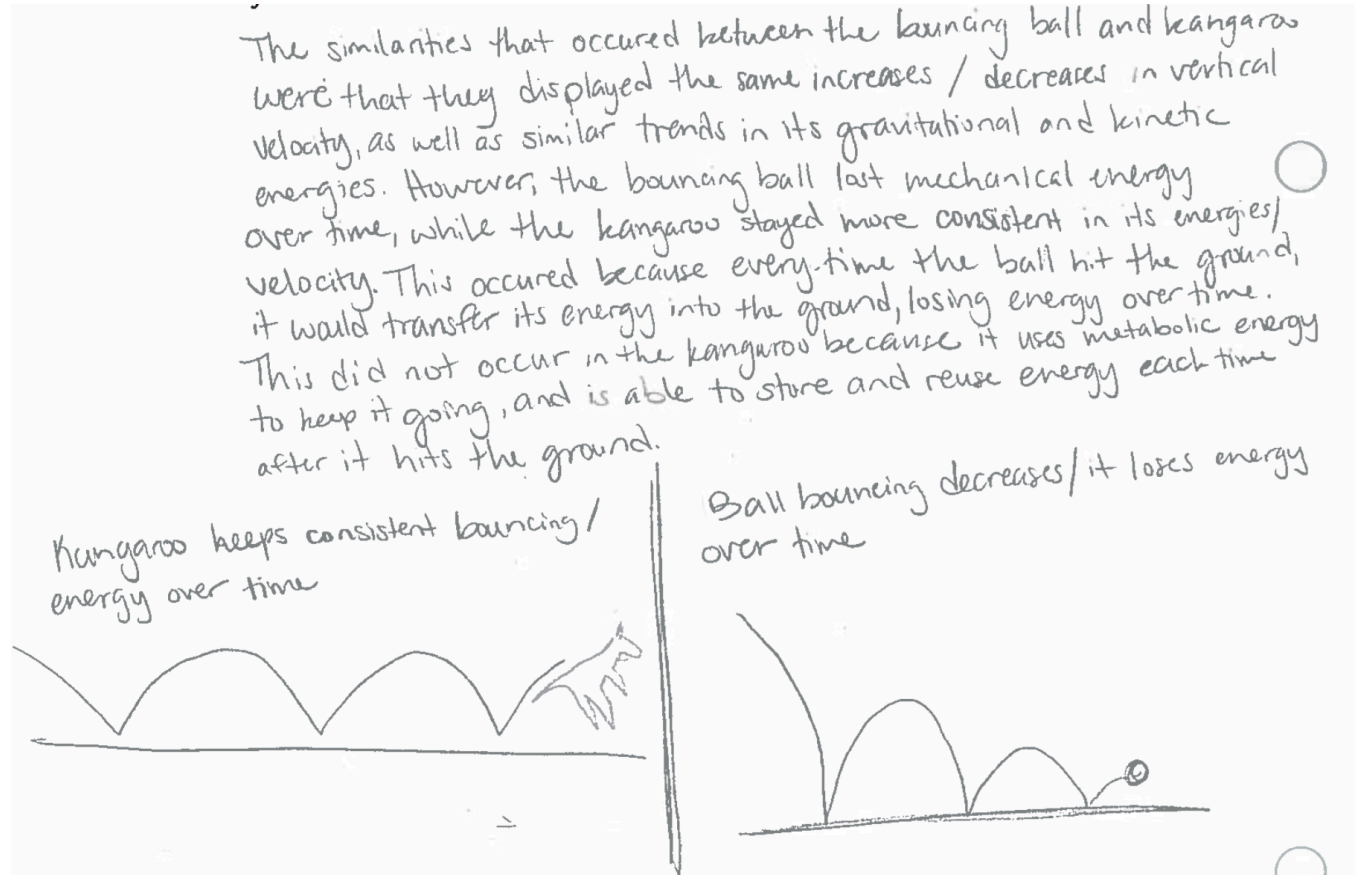 The similarities that occured between the bouncing ball and kangaroo
were that they displayed the same increases / decreases in vertical
velocity, as well as similar trends in its gravitational and kinetic
energies. However, the bouncing ball lost mechanical energy
over time, while the kangaroo stayed more consistent in its energies/
velocity. This occured because every-time the ball hit the ground,
it would transfer its energy into the ground, losing energy over time.
This did not occur in the kangaroo because it uses metabolic energy
to keep it going, and is able to store and reuse energy each time
after it hits the ground.
Kangaroo keeps consistent bouncing/
energy over time
Ball bouncing decreases/it loses energy
over time